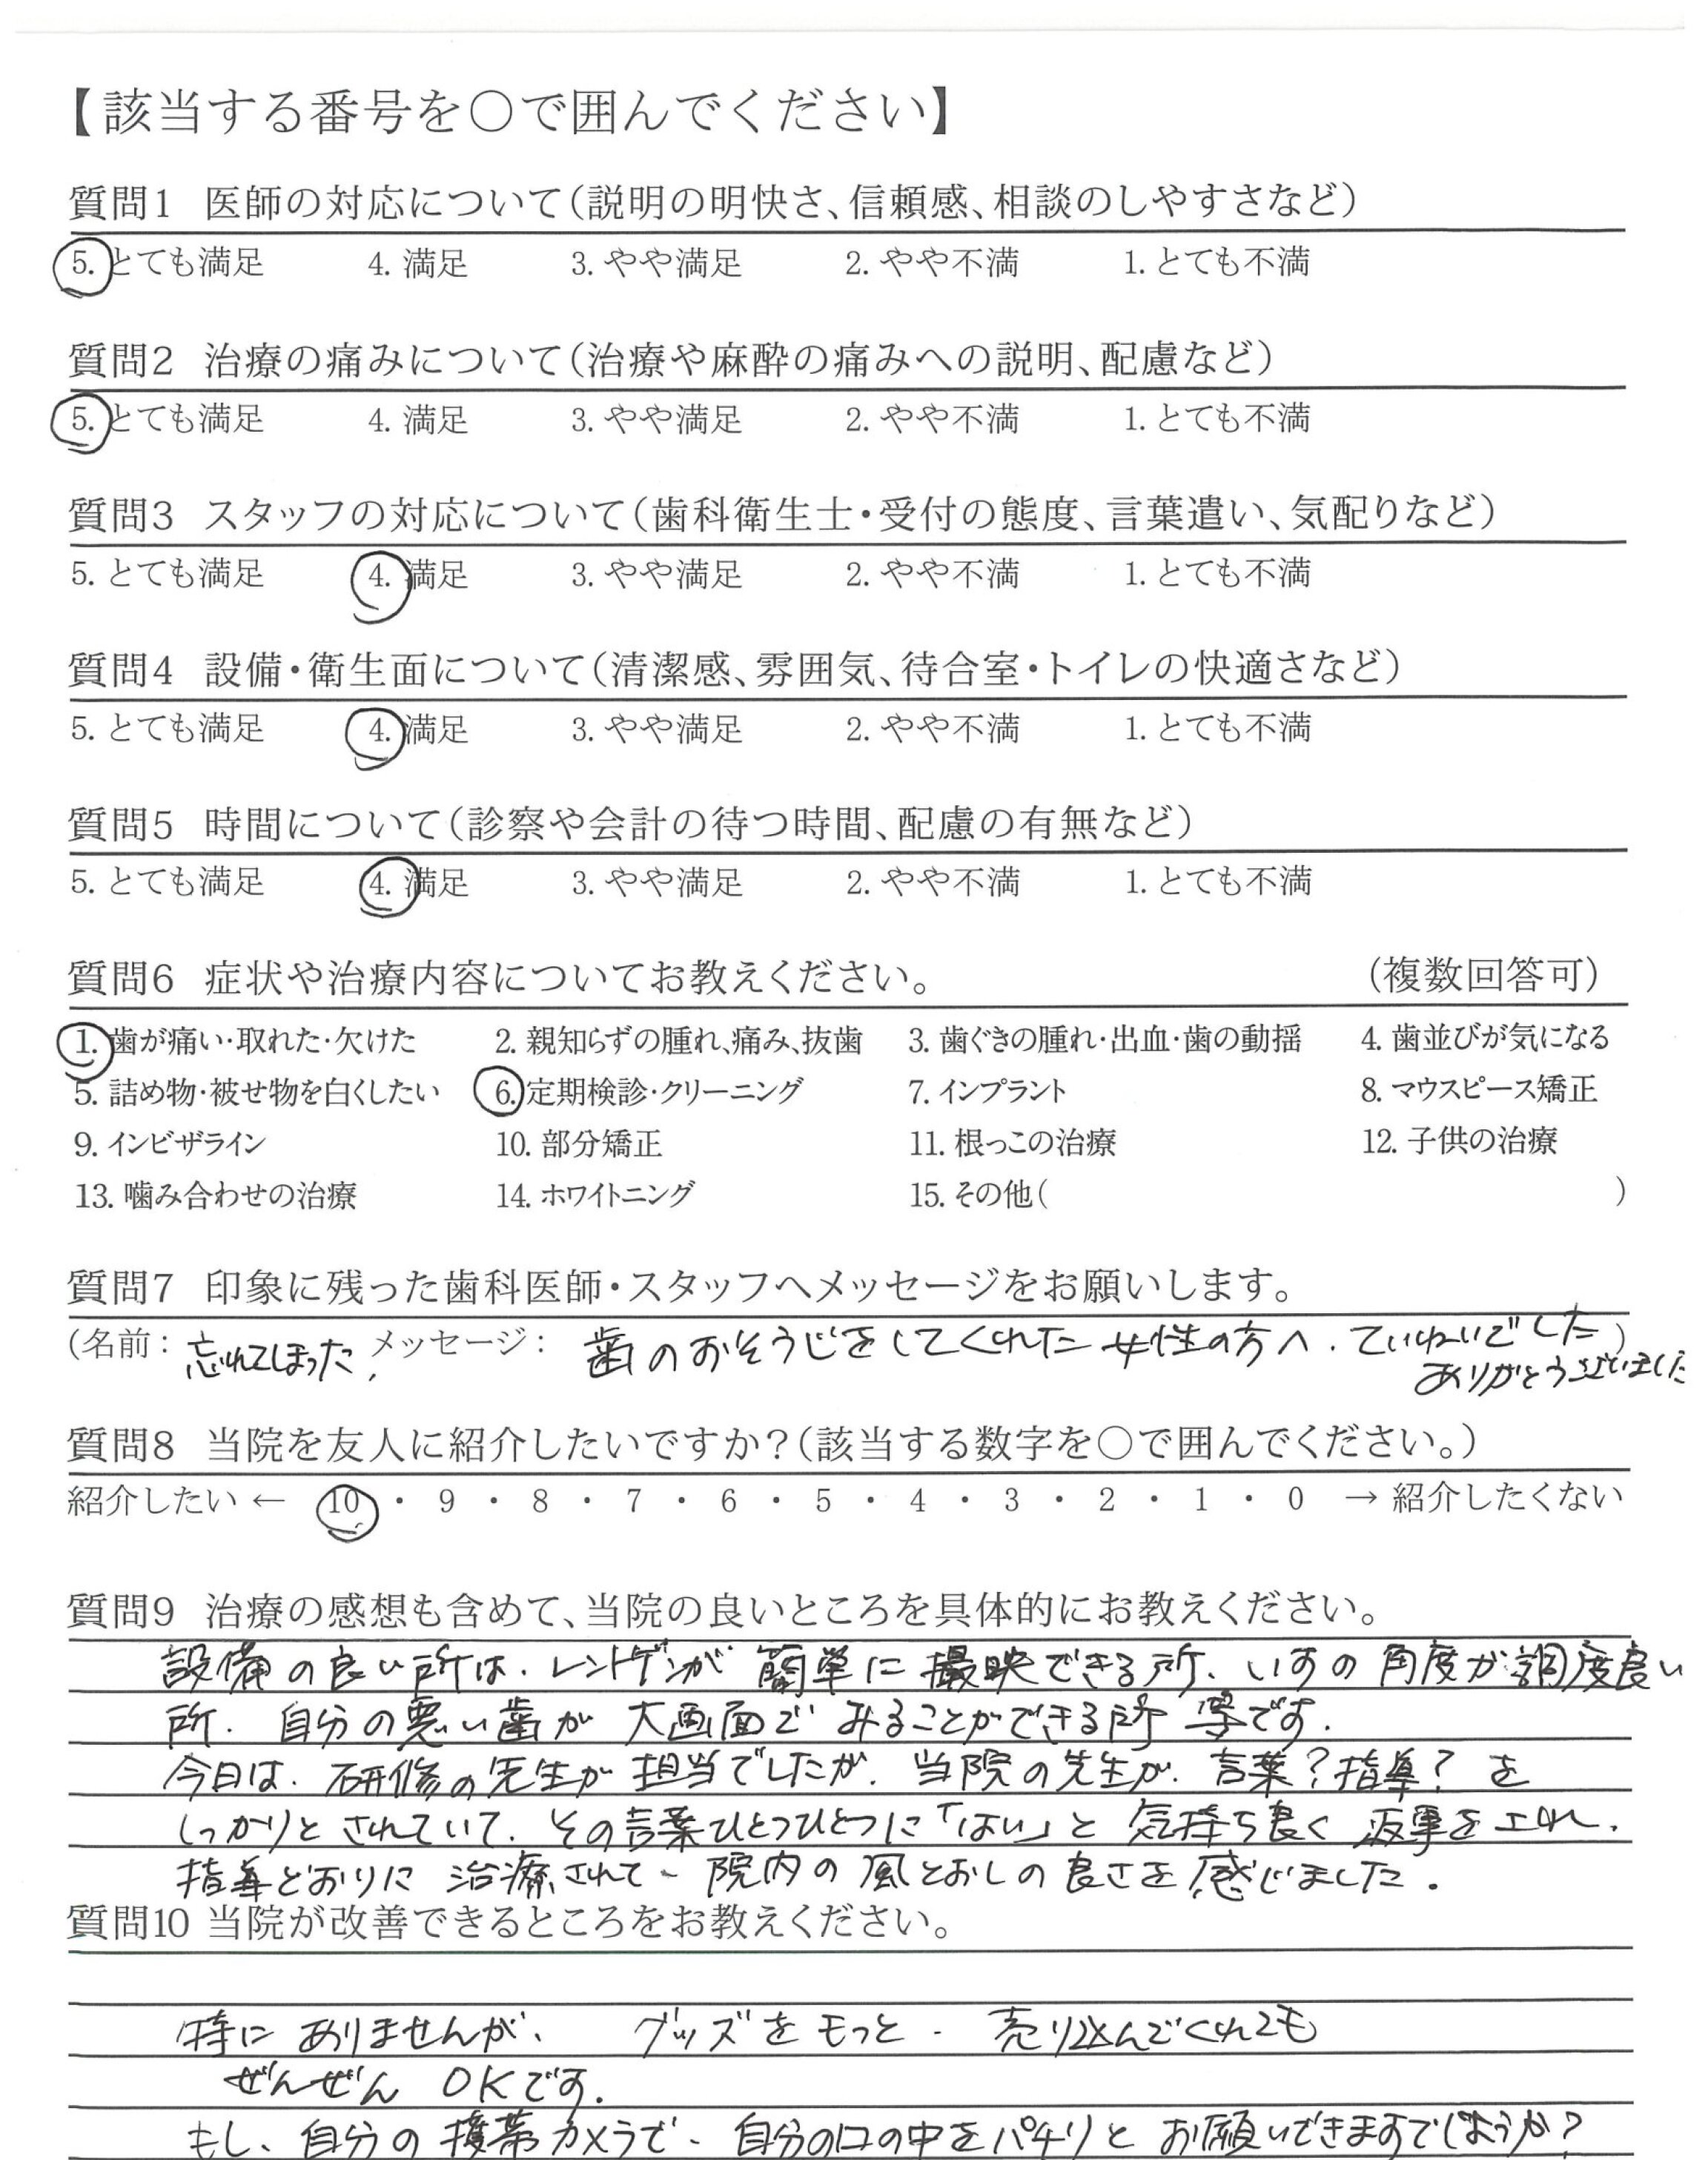 【該当する番号を○で囲んでください】
質問1 医師の対応について(説明の明快さ、信頼感、相談のしやすさなど)
5. とても満足 4. 満足 3. やや満足 2. やや不満 1. とても不満
質問2 治療の痛みについて(治療や麻酔の痛みへの説明、配慮など)
5. とても満足 4. 満足 3. やや満足 2. やや不満 1. とても不満
質問3 スタッフの対応について(歯科衛生士・受付の態度、言葉遣い、気配りなど)
5. とても満足 4. 満足 3. やや満足 2. やや不満 1. とても不満
質問4 設備・衛生面について(清潔感、雰囲気、待合室・トイレの快適さなど)
5. とても満足 4. 満足 3. やや満足 2. やや不満 1. とても不満
質問5 時間について(診察や会計の待つ時間、配慮の有無など)
5. とても満足 4. 満足 3. やや満足 2. やや不満 1. とても不満
質問6 症状や治療内容についてお教えください。 (複数回答可)
1. 歯が痛い・取れた・欠けた 2. 親知らずの腫れ、痛み、抜歯 3. 歯ぐきの腫れ・出血・歯の動揺 4. 歯並びが気になる
5. 詰め物・被せ物を白くしたい 6. 定期検診・クリーニング 7. インプラント 8. マウスピース矯正
9. インビザライン 10. 部分矯正 11. 根っこの治療 12. 子供の治療
13. 噛み合わせの治療 14. ホワイトニング 15. その他( )
質問7 印象に残った歯科医師・スタッフへメッセージをお願いします。
(名前: 忘れてしまった、メッセージ: 歯のおそうじをしてくれた女性の方へ、ていねいでした)
ありがとうございました
質問8 当院を友人に紹介したいですか?(該当する数字を○で囲んでください。)
紹介したい ← 10 ・ 9 ・ 8 ・ 7 ・ 6 ・ 5 ・ 4 ・ 3 ・ 2 ・ 1 ・ 0 → 紹介したくない
質問9 治療の感想も含めて、当院の良いところを具体的にお教えください。
設備の良い所は、レントゲンが簡単に撮映できる所、いすの角度が調度良い
所、自分の悪い歯が大画面でみることができる所 等です。
今日は、研修の先生が担当でしたが、当院の先生が、言葉?指導?を
しっかりとされていて、その言葉ひとつひとつに「はい」と気持ち良く返事をされ、
指導どおりに治療されて、院内の風とおしの良さを感じました。
質問10 当院が改善できるところをお教えください。
特にありませんが、グッズをもっと、売り込んでくれても
ぜんぜん OKです。
もし、自分の携帯カメラで、自分の口の中をパチリとお願いできますでしょうか?